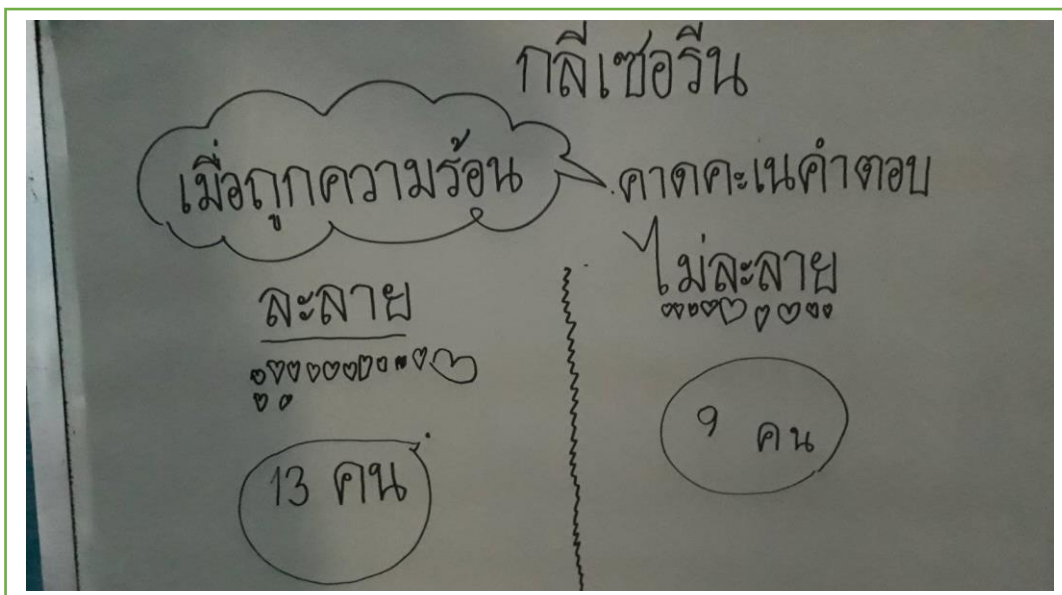 กลีเซอรีน
เมื่อถูกความร้อน
คาดคะเนคำตอบ
ละลาย
ไม่ละลาย
13 คน
9 คน